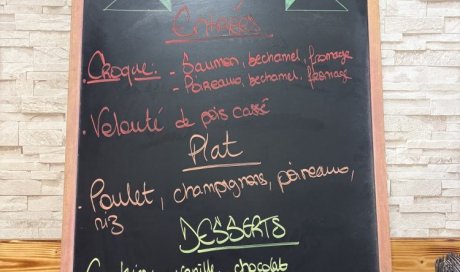 ENTRÉES
. CROQUE: - Saumon, bechamel, fromage
- Poireaux, bechamel, fromage
. Velouté de pois cassé
Plat
. Poulet, champignons, poireaux,
riz
DESSERTS
vanille, chocolat